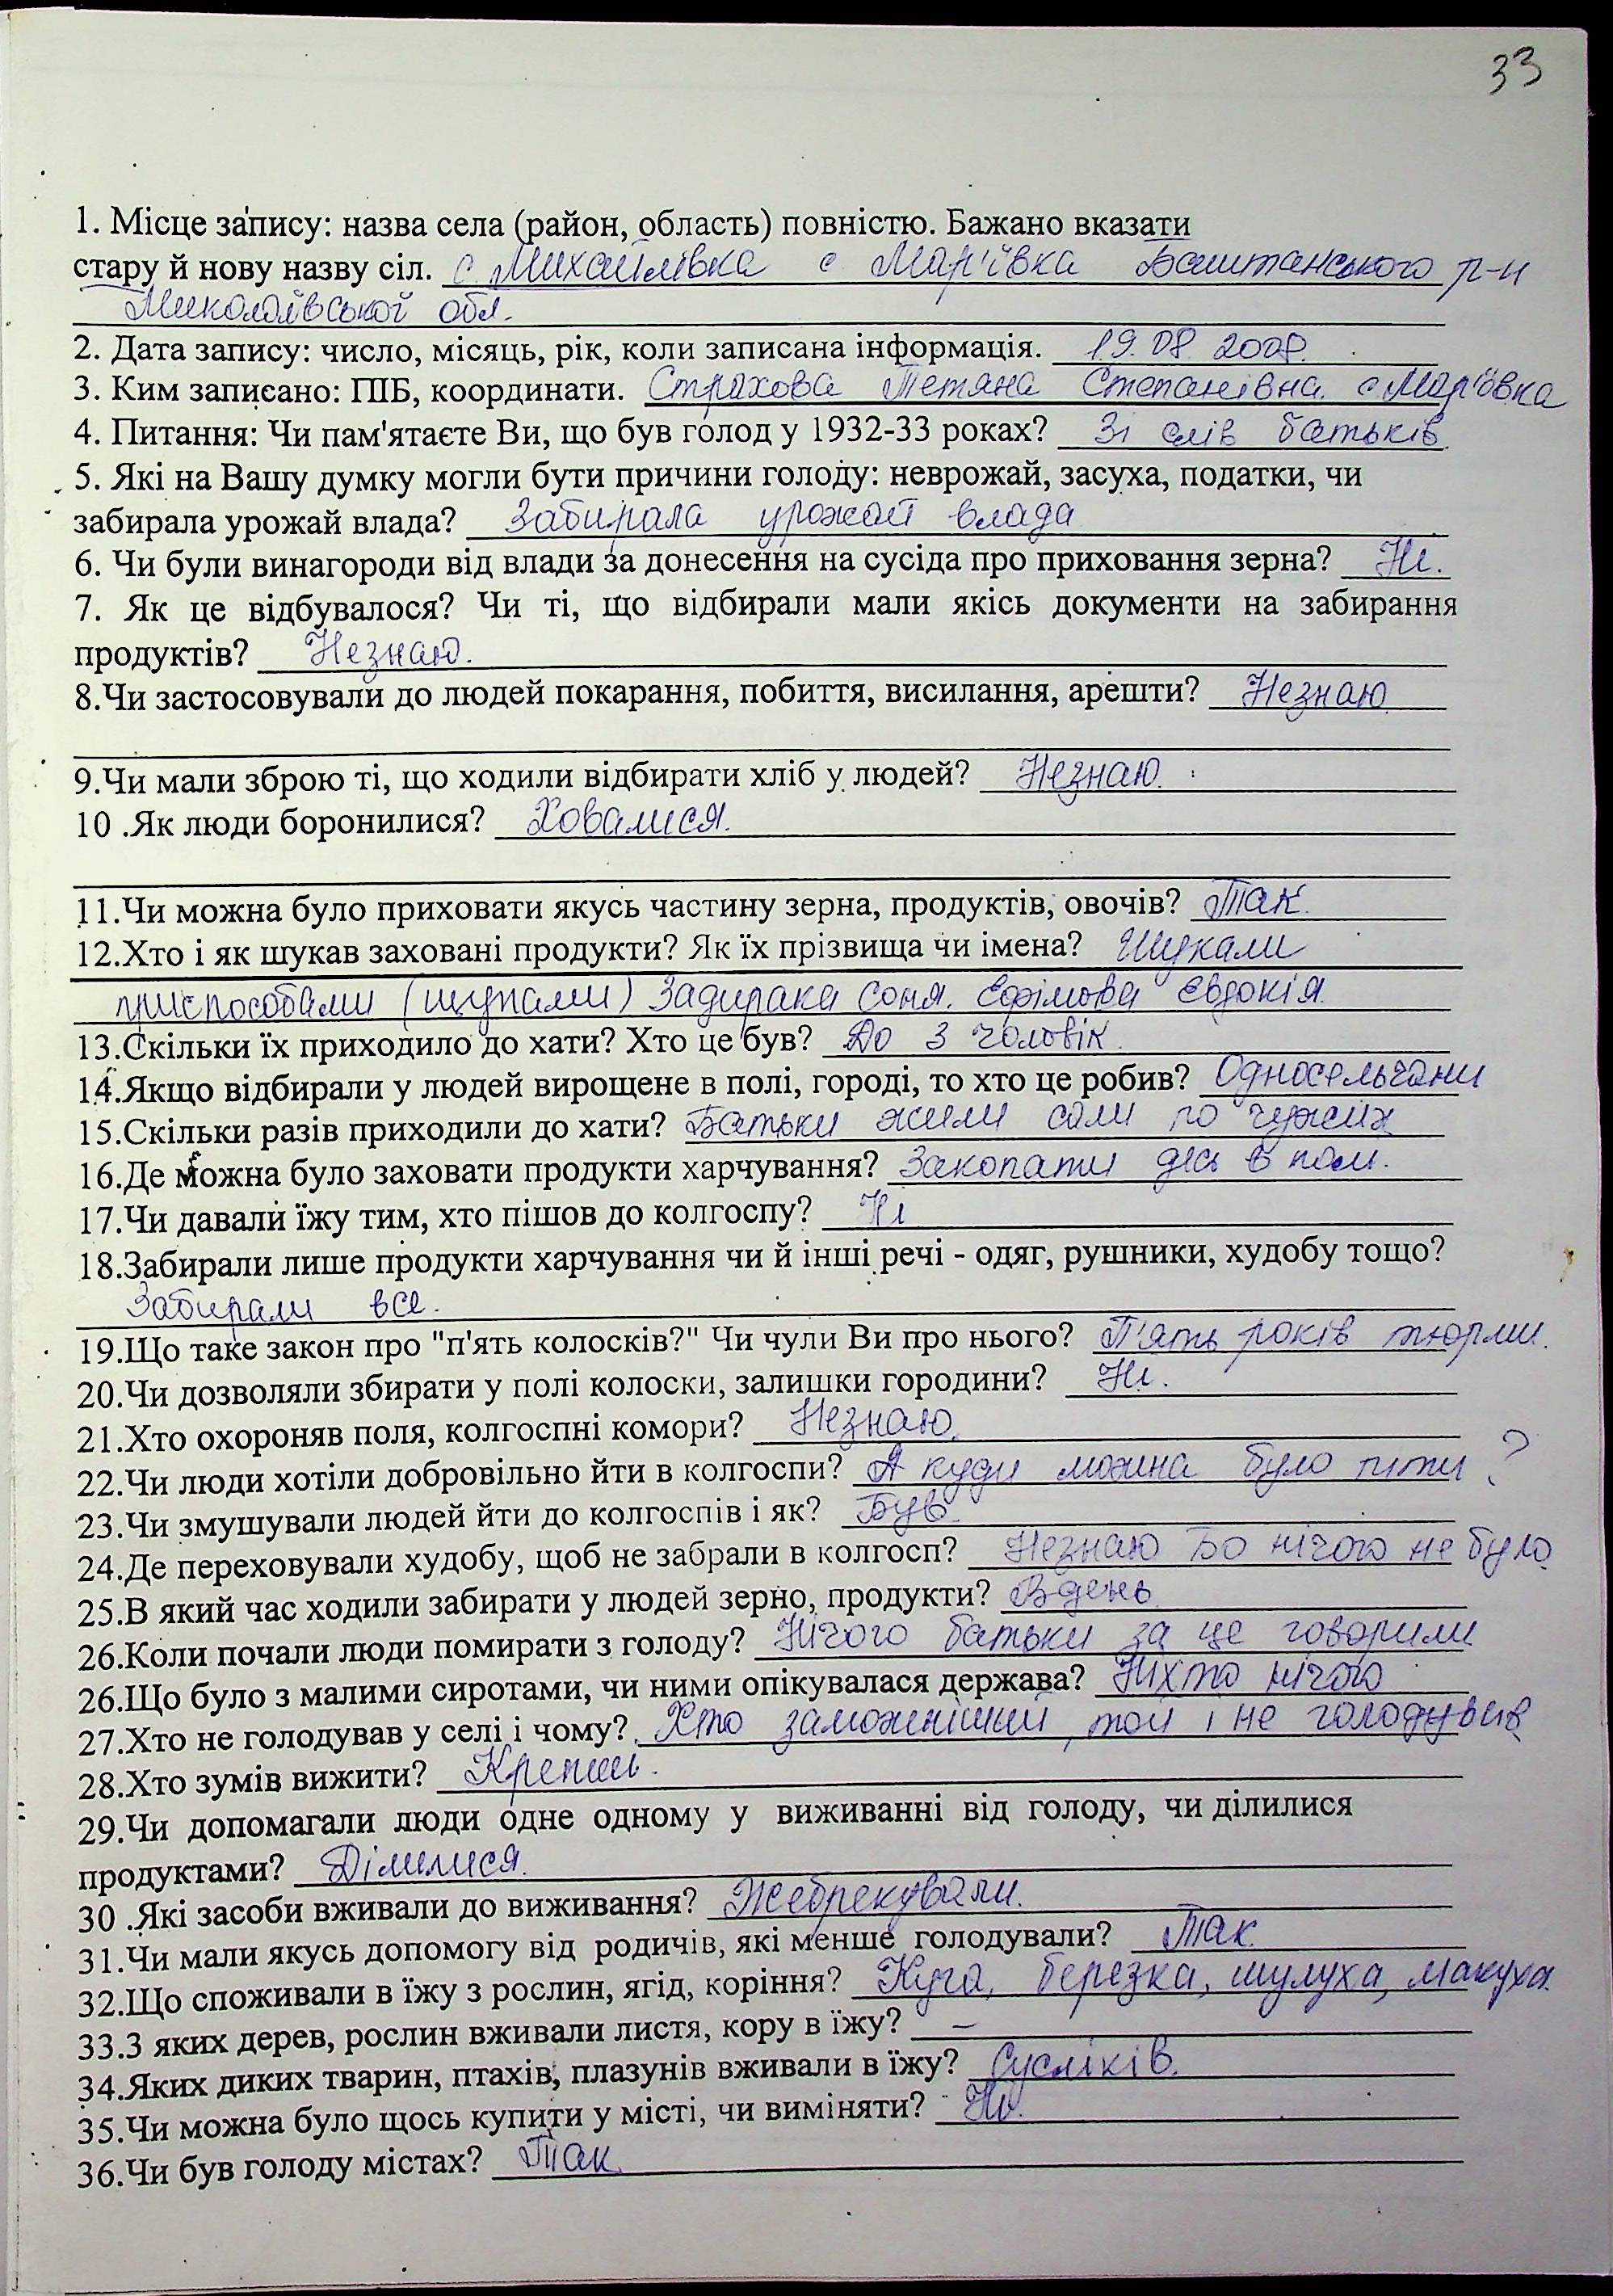 33
1. Місце запису: назва села (район, область) повністю. Бажано вказати
стару й нову назву сіл. с. Михайлівка с Мар'ївка Баштанського р-н
Миколаївської обл.
2. Дата запису: число, місяць, рік, коли записана інформація. 19.08 2008.
3. Ким записано: ПІБ, координати. Страхова Тетяна Степанівна. с Мар'ївка
4. Питання: Чи пам'ятаєте Ви, що був голод у 1932-33 роках? Зі слів батьків
5. Які на Вашу думку могли бути причини голоду: неврожай, засуха, податки, чи
забирала урожай влада? Забирала урожай влада
6. Чи були винагороди від влади за донесення на сусіда про приховання зерна? Ні.
7. Як це відбувалося? Чи ті, що відбирали мали якісь документи на забирання
продуктів? Незнаю.
8.Чи застосовували до людей покарання, побиття, висилання, арешти? Незнаю
9.Чи мали зброю ті, що ходили відбирати хліб у людей? Незнаю.
10 .Як люди боронилися? Ховалися.
11.Чи можна було приховати якусь частину зерна, продуктів, овочів? Так.
12.Хто і як шукав заховані продукти? Як їх прізвища чи імена? Шукали
приспособами (щупами) Задирака Соня. Єфімова Євдокія.
13.Скільки їх приходило до хати? Хто це був? До 3 чоловік.
14.Якщо відбирали у людей вирощене в полі, городі, то хто це робив? Односельчани
15.Скільки разів приходили до хати? Батьки жили самі по чужих
16.Де можна було заховати продукти харчування? Закопати десь в полі.
17.Чи давали їжу тим, хто пішов до колгоспу? Ні
18.Забирали лише продукти харчування чи й інші речі - одяг, рушники, худобу тощо?
Забирали все.
19.Що таке закон про "п'ять колосків?" Чи чули Ви про нього? П'ять років тюрми.
20.Чи дозволяли збирати у полі колоски, залишки городини? Ні.
21.Хто охороняв поля, колгоспні комори? Незнаю.
22.Чи люди хотіли добровільно йти в колгоспи? А куди можна було піти ?
23.Чи змушували людей йти до колгоспів і як? Був.
24.Де переховували худобу, щоб не забрали в колгосп? Незнаю Бо нічого не було
25.В який час ходили забирати у людей зерно, продукти? Вдень
26.Коли почали люди помирати з голоду? Нічого батьки за це говорили
26.Що було з малими сиротами, чи ними опікувалася держава? Ніхто нічого
27.Хто не голодував у селі і чому? Хто заможніший, той і не голодував
28.Хто зумів вижити? Крепші.
29.Чи допомагали люди одне одному у виживанні від голоду, чи ділилися
продуктами? Ділилися.
30 .Які засоби вживали до виживання? Жебрекували.
31.Чи мали якусь допомогу від родичів, які менше голодували? Так.
32.Що споживали в їжу з рослин, ягід, коріння? Куга, березка, шулуха, макуха.
33.З яких дерев, рослин вживали листя, кору в їжу? –
34.Яких диких тварин, птахів, плазунів вживали в їжу? Сусліків.
35.Чи можна було щось купити у місті, чи виміняти? Ні.
36.Чи був голоду містах? Так